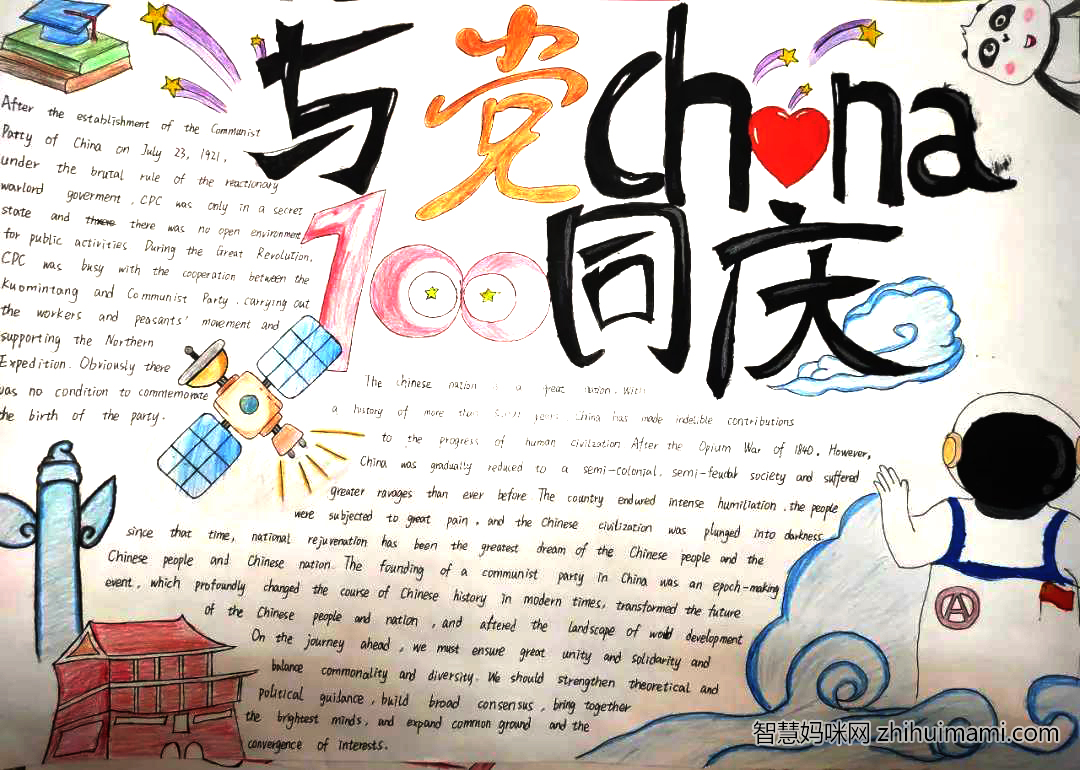 与党china
100同庆
After the establishment of the Communist
Party of China on July 23, 1921,
under the brutal rule of the reactionary
warlord goverment, CPC was only in a secret
state and there was no open environment
for public activities. During the Great Revolution,
CPC was busy with the cooperation between the
Kuomintang and Communist Party. carrying out
the workers and peasants' movement and
supporting the Northern
Expedition. Obviously there
was no condition to commemorate
the birth of the party.
The chinese nation is a great nation. With
a history of more than years. China has made indelible contributions
to the progress of human civilzation. After the Opium War of 1840. However,
China was gradually reduced to a semi-colonial. semi-feudal society and suffered
greater ravages than ever before The country endured intense humiliation. the people
were subjected to great pain, and the Chinese civilization was plunged into darkness.
since that time, national rejuvenation has been the greatest dream of the Chinese people and the
Chinese people and Chinese nation. The founding of a communist party in China was an epoch-making
event, which profoundly changed the course of Chinese history in modern times, transformed the future
of the Chinese people and nation, and altered the landscape of world development
On the journey ahead, we must ensure great unity and solidarity and
balance commonality and diversity. We should strengthen theoretical and
political guidance, build broad consensus, bring together
the brightest minds, and expand common ground and the
convergence of interests.
A
智慧妈咪网 zhihuimami.com